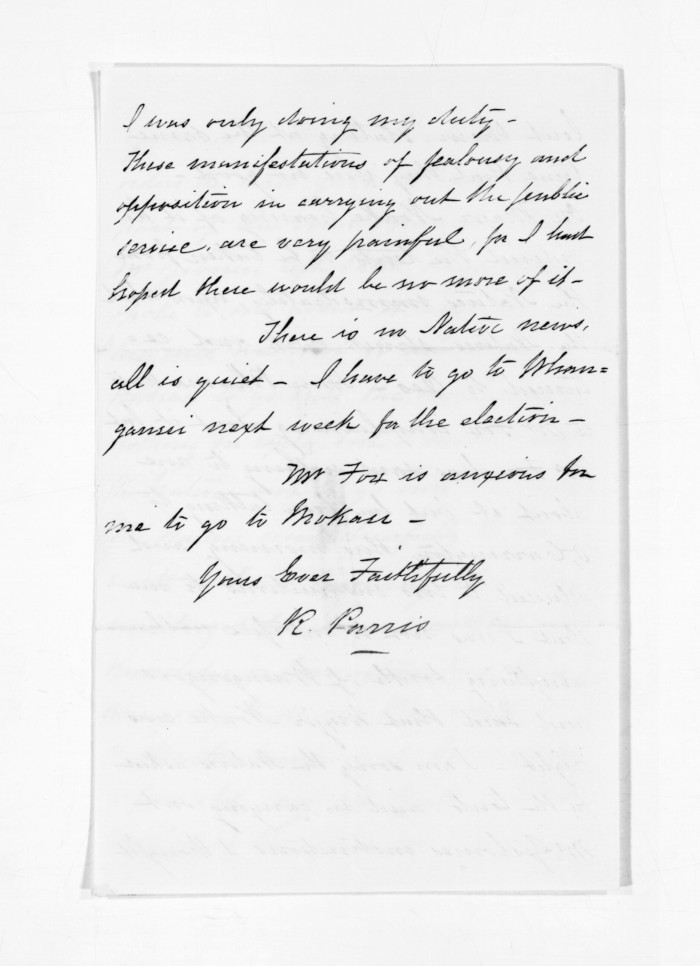 I was only doing my duty -
These manifestations of jealousy and
opposition in carrying out the public
service, are very painful, for I had
hoped there would be no more of it -
There is no Native news,
all is quiet - I have to go to Whan=
ganui next week for the election -
Mr Fox is anxious for
me to go to Mokau -
Yours Ever Faithfully
R. Parris